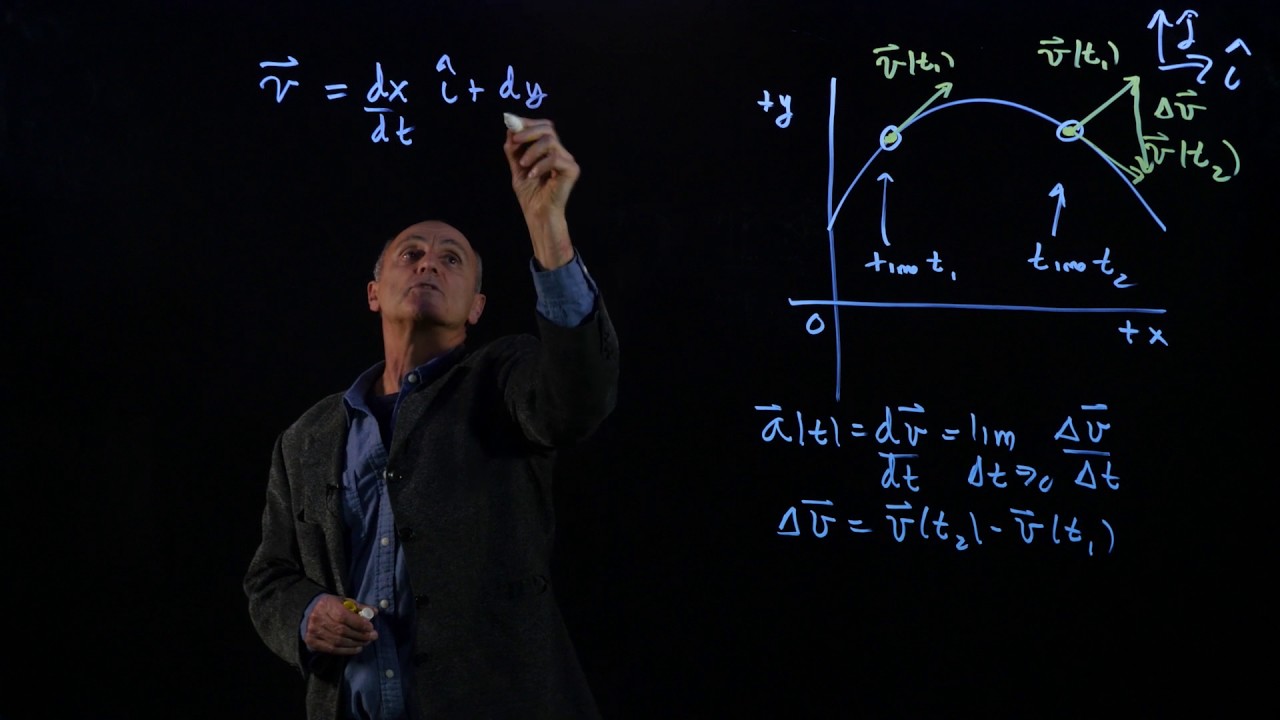 v⃗ = dx/dt î + dy
ĵ
î
v⃗(t₁)
v⃗(t₁)
Δv⃗
v⃗(t₂)
+y
time t₁
time t₂
0
+x
a⃗(t) = dv⃗/dt = lim Δt→0 Δv⃗/Δt
Δv⃗ = v⃗(t₂) - v⃗(t₁)